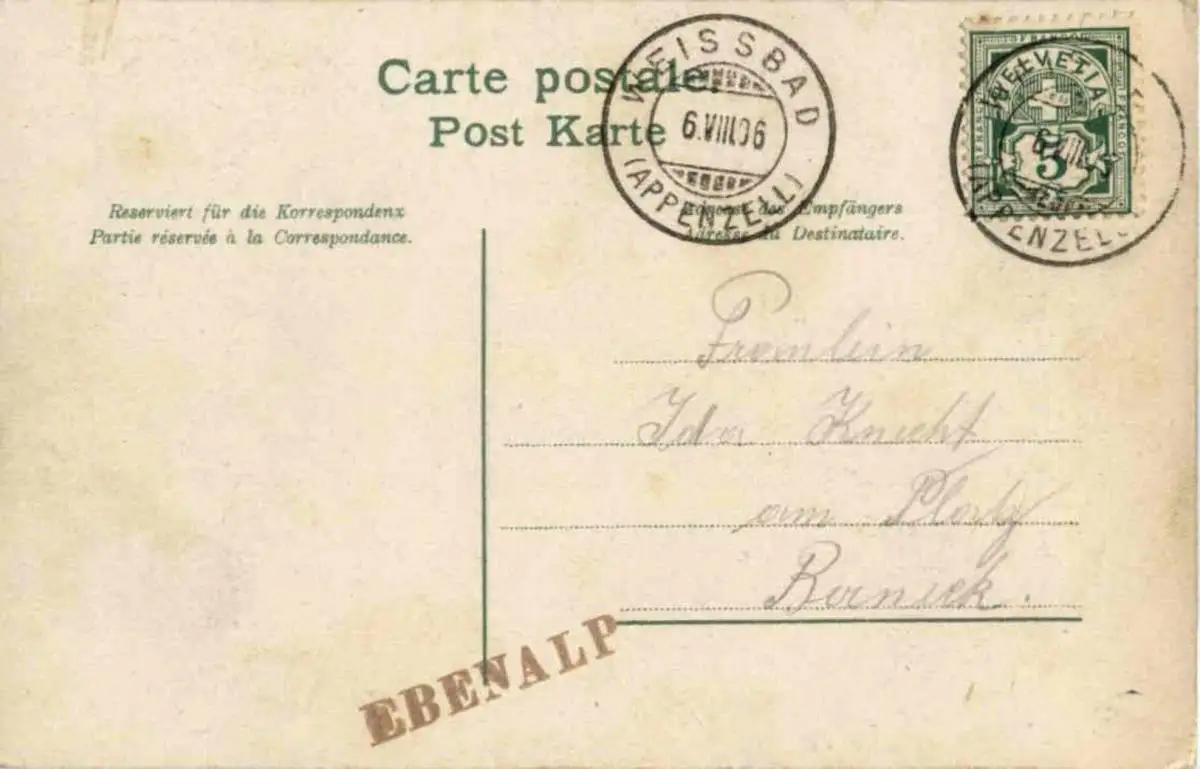 Carte postale.
Post Karte
WEISSBAD
6.VIII.06
(APPENZELL)
FRANCO
HELVETIA
5
6.VIII.
(APPENZELL
Reserviert für die Korrespondenz
Partie réservée à la Correspondance.
des Empfängers
Adresse du Destinataire.
Fräulein
Ida Knecht
am Platz
Berneck.
EBENALP